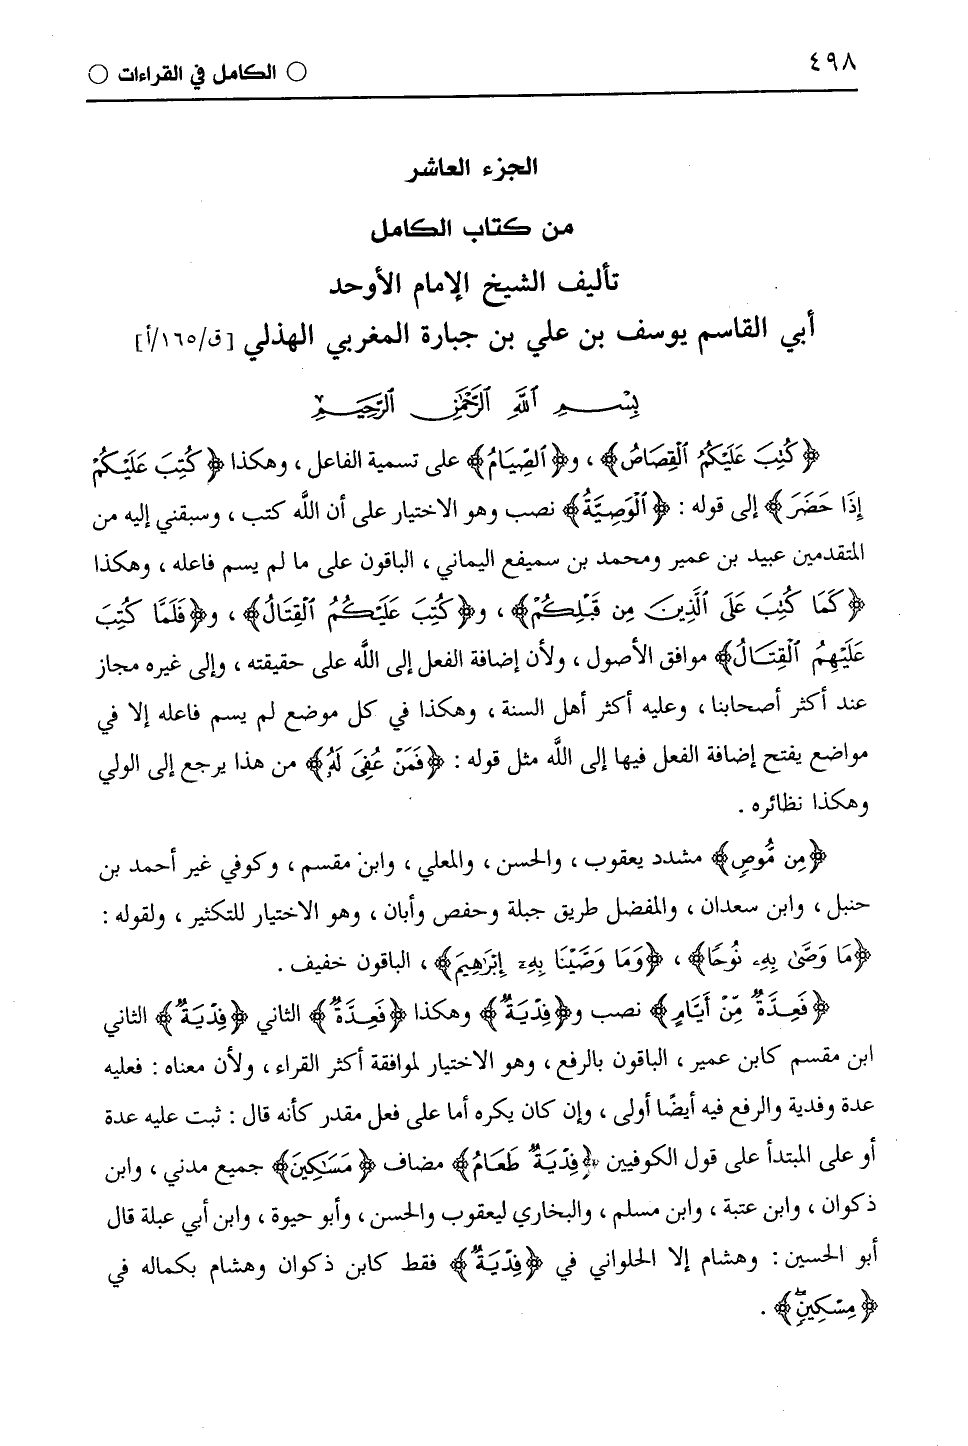 ٤٩٨
○ الكامل في القراءات ○
الجزء العاشر
من كتاب الكامل
تأليف الشيخ الإمام الأوحد
أبي القاسم يوسف بن علي بن جبارة المغربي الهذلي [ق/١٦٥/أ]
بِسْمِ اللَّهِ الرَّحْمَٰنِ الرَّحِيمِ
﴿كُتِبَ عَلَيْكُمُ الْقِصَاصُ﴾ ، و﴿الصِّيَامُ﴾ على تسمية الفاعل ، وهكذا ﴿كُتِبَ عَلَيْكُمْ
إِذَا حَضَرَ﴾ إلى قوله : ﴿الْوَصِيَّةُ﴾ نصب وهو الاختيار على أن اللَّه كتب ، وسبقني إليه من
المتقدمين عبيد بن عمير ومحمد بن سميفع اليماني ، الباقون على ما لم يسم فاعله ، وهكذا
﴿كَمَا كُتِبَ عَلَى الَّذِينَ مِن قَبْلِكُمْ﴾ ، و﴿كُتِبَ عَلَيْكُمُ الْقِتَالُ﴾ ، و﴿فَلَمَّا كُتِبَ
عَلَيْهِمُ الْقِتَالُ﴾ موافق الأصول ، ولأن إضافة الفعل إلى اللَّه على حقيقته ، وإلى غيره مجاز
عند أكثر أصحابنا ، وعليه أكثر أهل السنة ، وهكذا في كل موضع لم يسم فاعله إلا في
مواضع يفتح إضافة الفعل فيها إلى اللَّه مثل قوله : ﴿فَمَنْ عُفِيَ لَهُ﴾ من هذا يرجع إلى الولي
وهكذا نظائره .
﴿مِن مُّوصٍ﴾ مشدد يعقوب ، والحسن ، والمعلي ، وابن مقسم ، وكوفي غير أحمد بن
حنبل ، وابن سعدان ، والمفضل طريق جبلة وحفص وأبان ، وهو الاختيار للتكثير ، ولقوله :
﴿مَا وَصَّىٰ بِهِۦ نُوحًا﴾ ، ﴿وَمَا وَصَّيْنَا بِهِۦٓ إِبْرَٰهِيمَ﴾ ، الباقون خفيف .
﴿فَعِدَّةٌ مِّنْ أَيَّامٍ﴾ نصب و﴿فِدْيَةٌ﴾ وهكذا ﴿فَعِدَّةٌ﴾ الثاني ﴿فِدْيَةٌ﴾ الثاني
ابن مقسم كابن عمير ، الباقون بالرفع ، وهو الاختيار لموافقة أكثر القراء ، ولأن معناه : فعليه
عدة وفدية والرفع فيه أيضًا أولى ، وإن كان يكره أما على فعل مقدر كأنه قال : ثبت عليه عدة
أو على المبتدأ على قول الكوفيين ﴿فِدْيَةٌ طَعَامُ﴾ مضاف ﴿مَسَٰكِينَ﴾ جميع مدني ، وابن
ذكوان ، وابن عتبة ، وابن مسلم ، والبخاري ليعقوب والحسن ، وأبو حيوة ، وابن أبي عبلة قال
أبو الحسين : وهشام إلا الحلواني في ﴿فِدْيَةٌ﴾ فقط كابن ذكوان وهشام بكماله في
﴿مِسْكِينٍ﴾ .